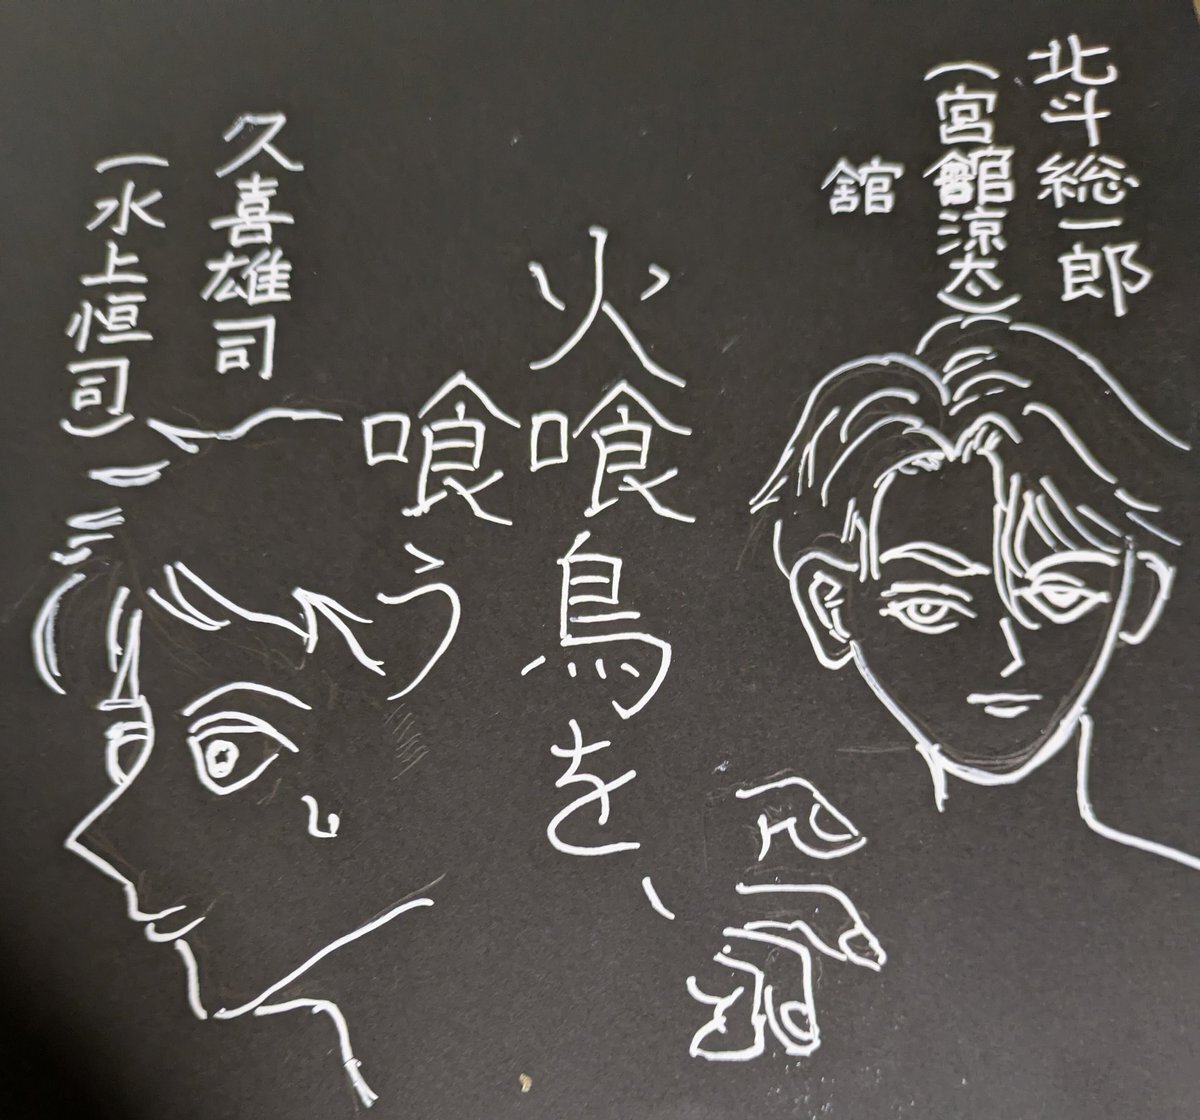 北斗総一郎
(宮舘涼太)
舘
火喰鳥を、
喰う
久喜雄司
(水上恒司)